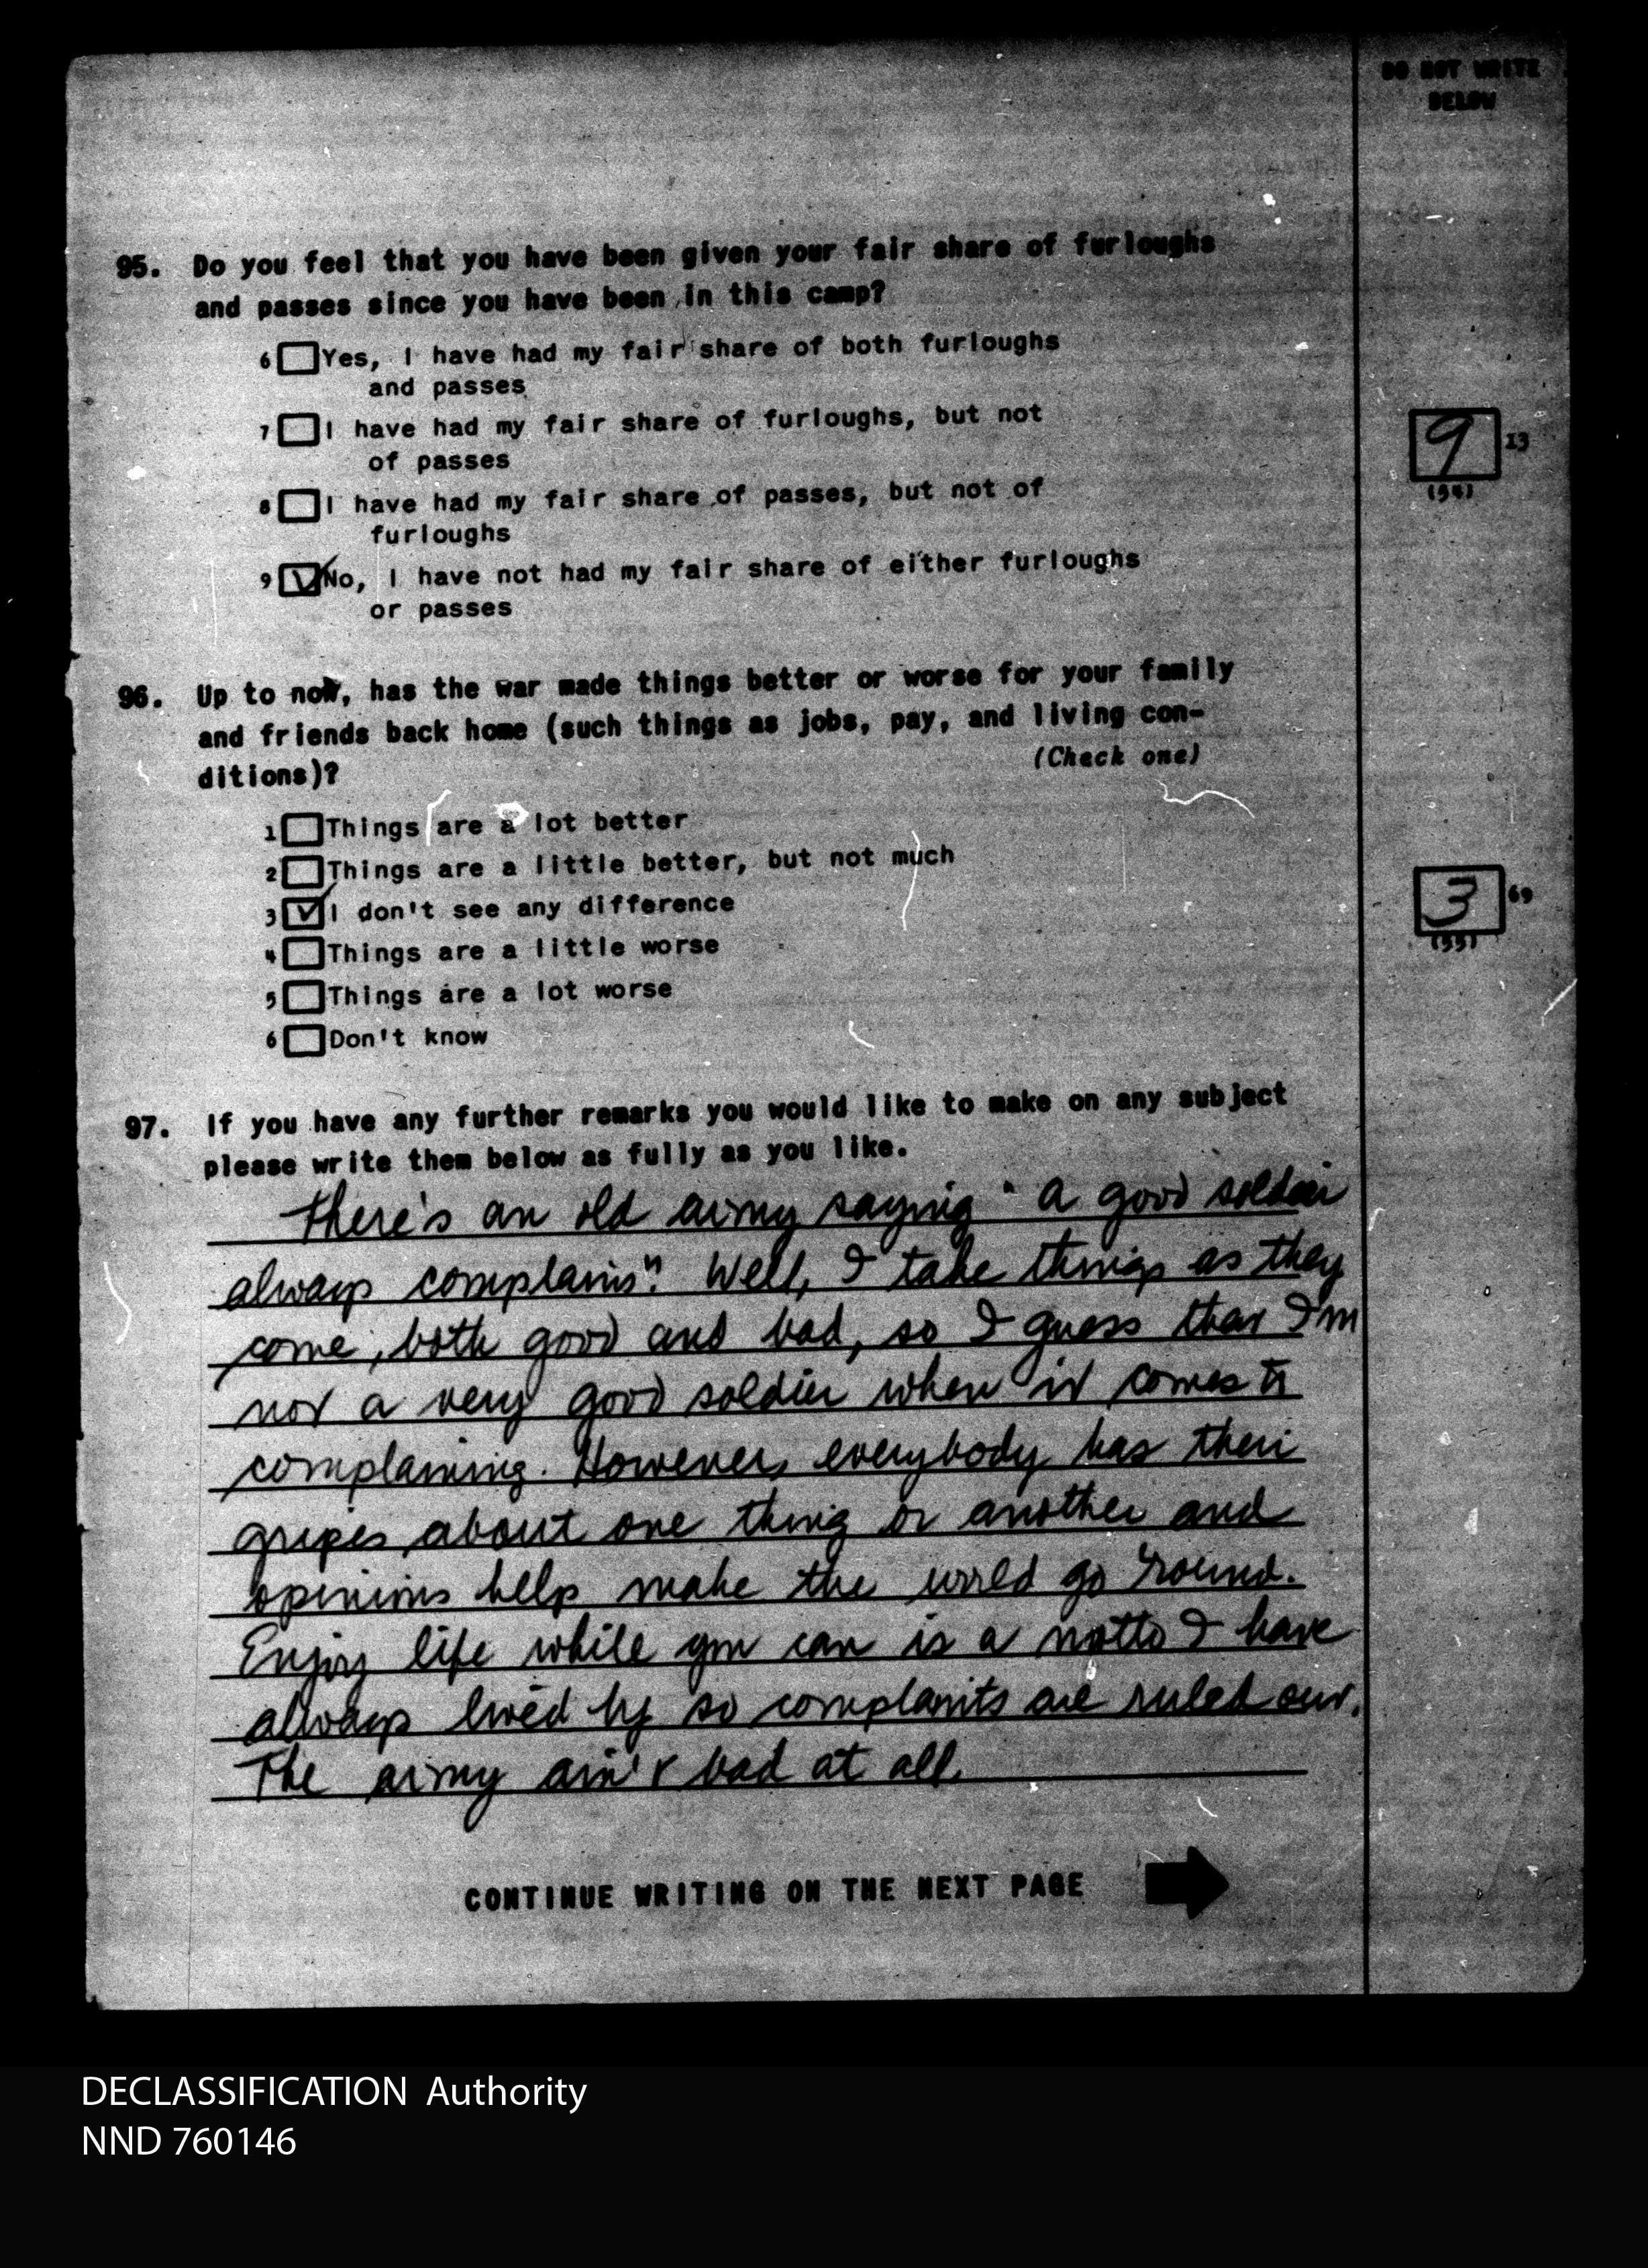 DO NOT WRITE
BELOW
95. Do you feel that you have been given your fair share of furloughs
and passes since you have been in this camp?
6 Yes, I have had my fair share of both furloughs
and passes
7 I have had my fair share of furloughs, but not
of passes
9 13
(54)
8 I have had my fair share of passes, but not of
furloughs
9 No, I have not had my fair share of either furloughs
or passes
96. Up to now, has the war made things better or worse for your family
and friends back home (such things as jobs, pay, and living con-
ditions)?
(Check one)
1 Things are a lot better
2 Things are a little better, but not much
3 I don't see any difference
3 69
(55)
4 Things are a little worse
5 Things are a lot worse
6 Don't know
97. If you have any further remarks you would like to make on any subject
please write them below as fully as you like.
There's an old army saying "a good soldier
always complains". Well, I take things as they
come, both good and bad, so I guess that I'm
not a very good soldier when it comes to
complaining. However, everybody has their
gripes about one thing or another and
opinions help make the world go 'round.
Enjoy life while you can is a motto I have
always lived by so complaints are ruled out.
The army ain't bad at all.
CONTINUE WRITING ON THE NEXT PAGE
DECLASSIFICATION Authority
NND 760146